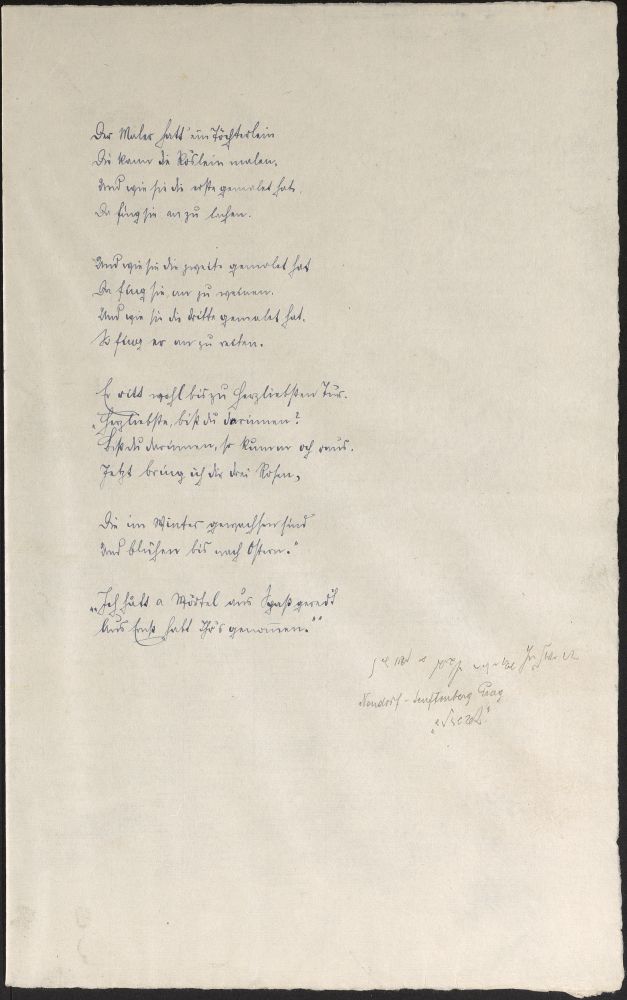 Der Maler hatt' ein Töchterlein
Die kann die Röslein malen,
Und wie sie die erste gemalet hat,
Da fing sie an zu lachen.
Und wie sie die zweite gemalet hat
Da fing sie an zu weinen.
Und wie sie die dritte gemalet hat.
So fing er an zu reiten.
Er ritt wohl bis zu Herzliebsten Tür.
„Herzliebste, bist du darinnen?
Bist du darinnen, so kumm och raus.
Jetzt bring ich dir drei Rosen,
Die im Winter gewachsen sind
Und blühen bis nach Ostern."
„Ich hätt a Wörtel aus Spaß geredt
Aus Ernst hatt Ihr's genommen."
Senftenberg